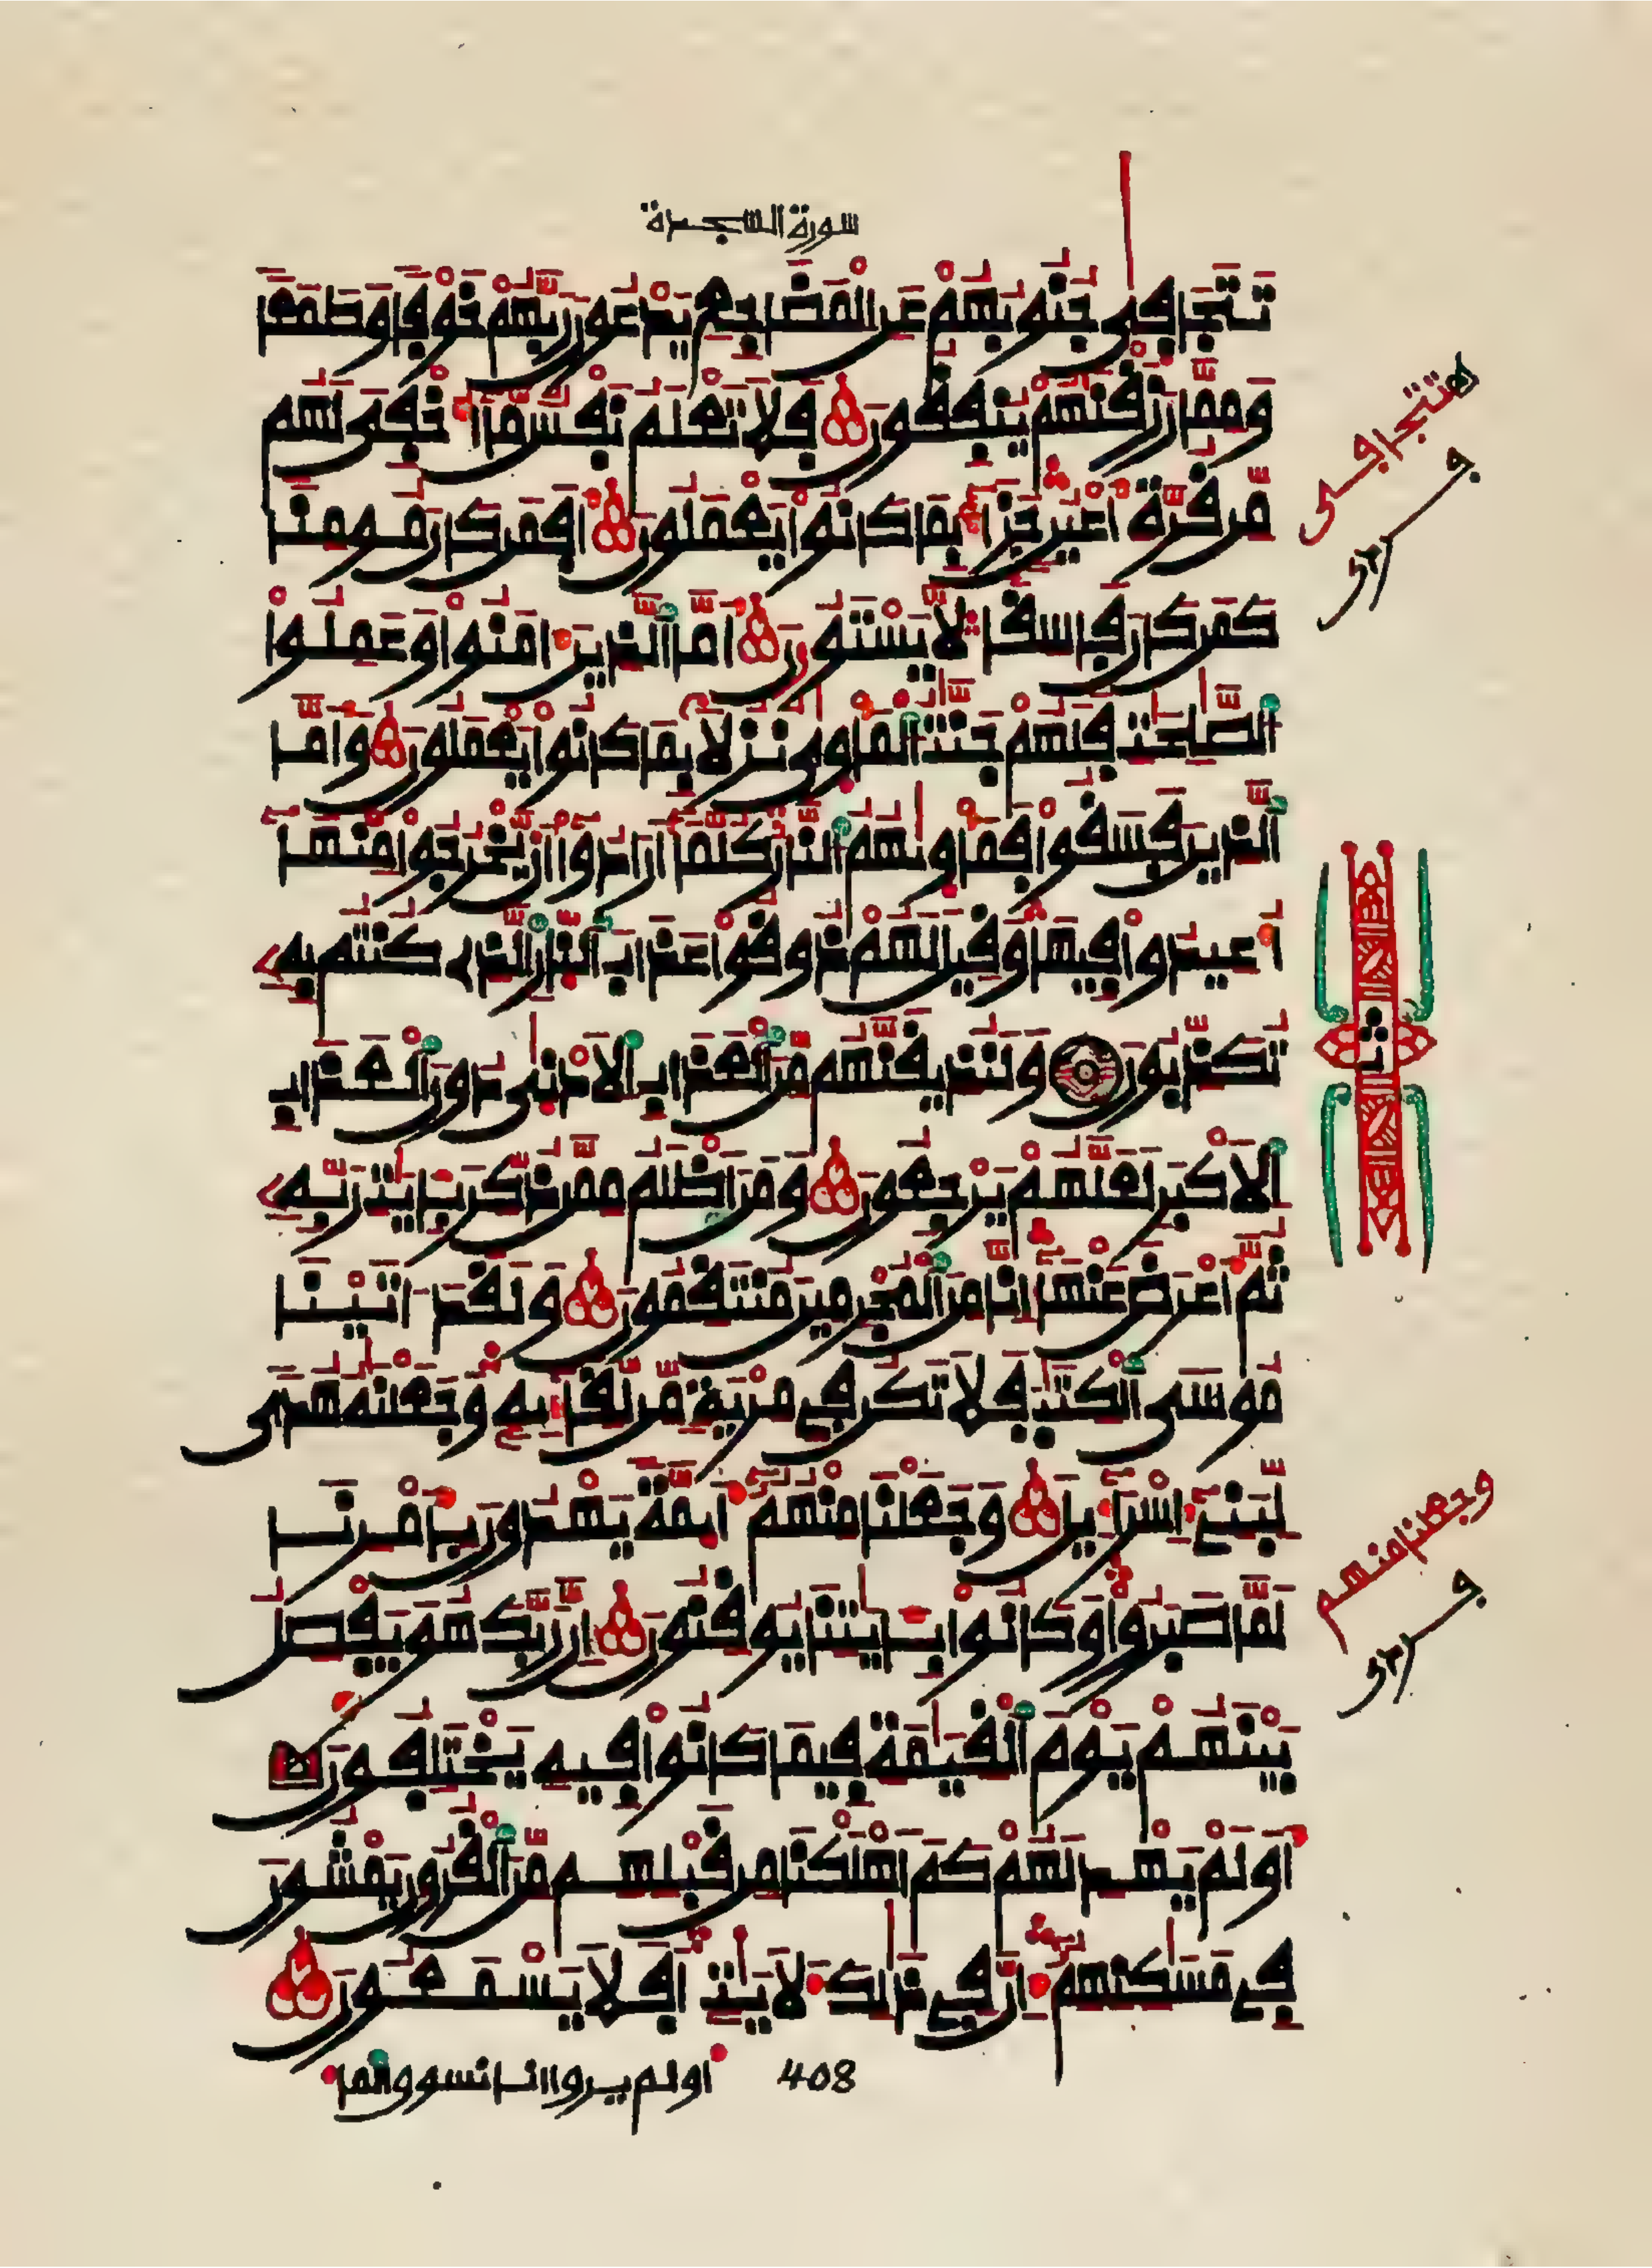 سورة السجدة
تتجافى جنوبهم عن المضاجع يدعون ربهم خوفا وطمعا
ومما رزقنهم ينفقون فلا تعلم نفس ما أخفى لهم
من قرة أعين جزاء بما كانوا يعملون أفمن كان مومنا
كمن كان فاسقا لا يستون أما الذين ءامنوا وعملوا
الصلحت فلهم جنت الماوى نزلا بما كانوا يعملون وأما
الذين فسقوا فماويهم النار كلما أرادوا أن يخرجوا منها
أعيدوا فيها وقيل لهم ذوقوا عذاب النار الذى كنتم به
تكذبون ولنذيقنهم من العذاب الادنى دون العذاب
الاكبر لعلهم يرجعون ومن اظلم ممن ذكر بايت ربه
ثم أعرض عنها إنا من المجرمين منتقمون ولقد اتينا
موسى الكتب فلا تكن في مرية من لقايه وجعلنه هدى
لبني إسراءيل وجعلنا منهم أيمة يهدون بامرنا
لما صبروا وكانوا بايتنا يوقنون إن ربك هو يفصل
بينهم يوم القيمة فيما كانوا فيه يختلفون
أولم يهد لهم كم أهلكنا من قبلهم من القرون يمشون
في مسكنهم إن في ذلك لايت أفلا يسمعون
408
اولم يروا انا نسوق الما
تتجافى
ثمن
وجعلنا منهم